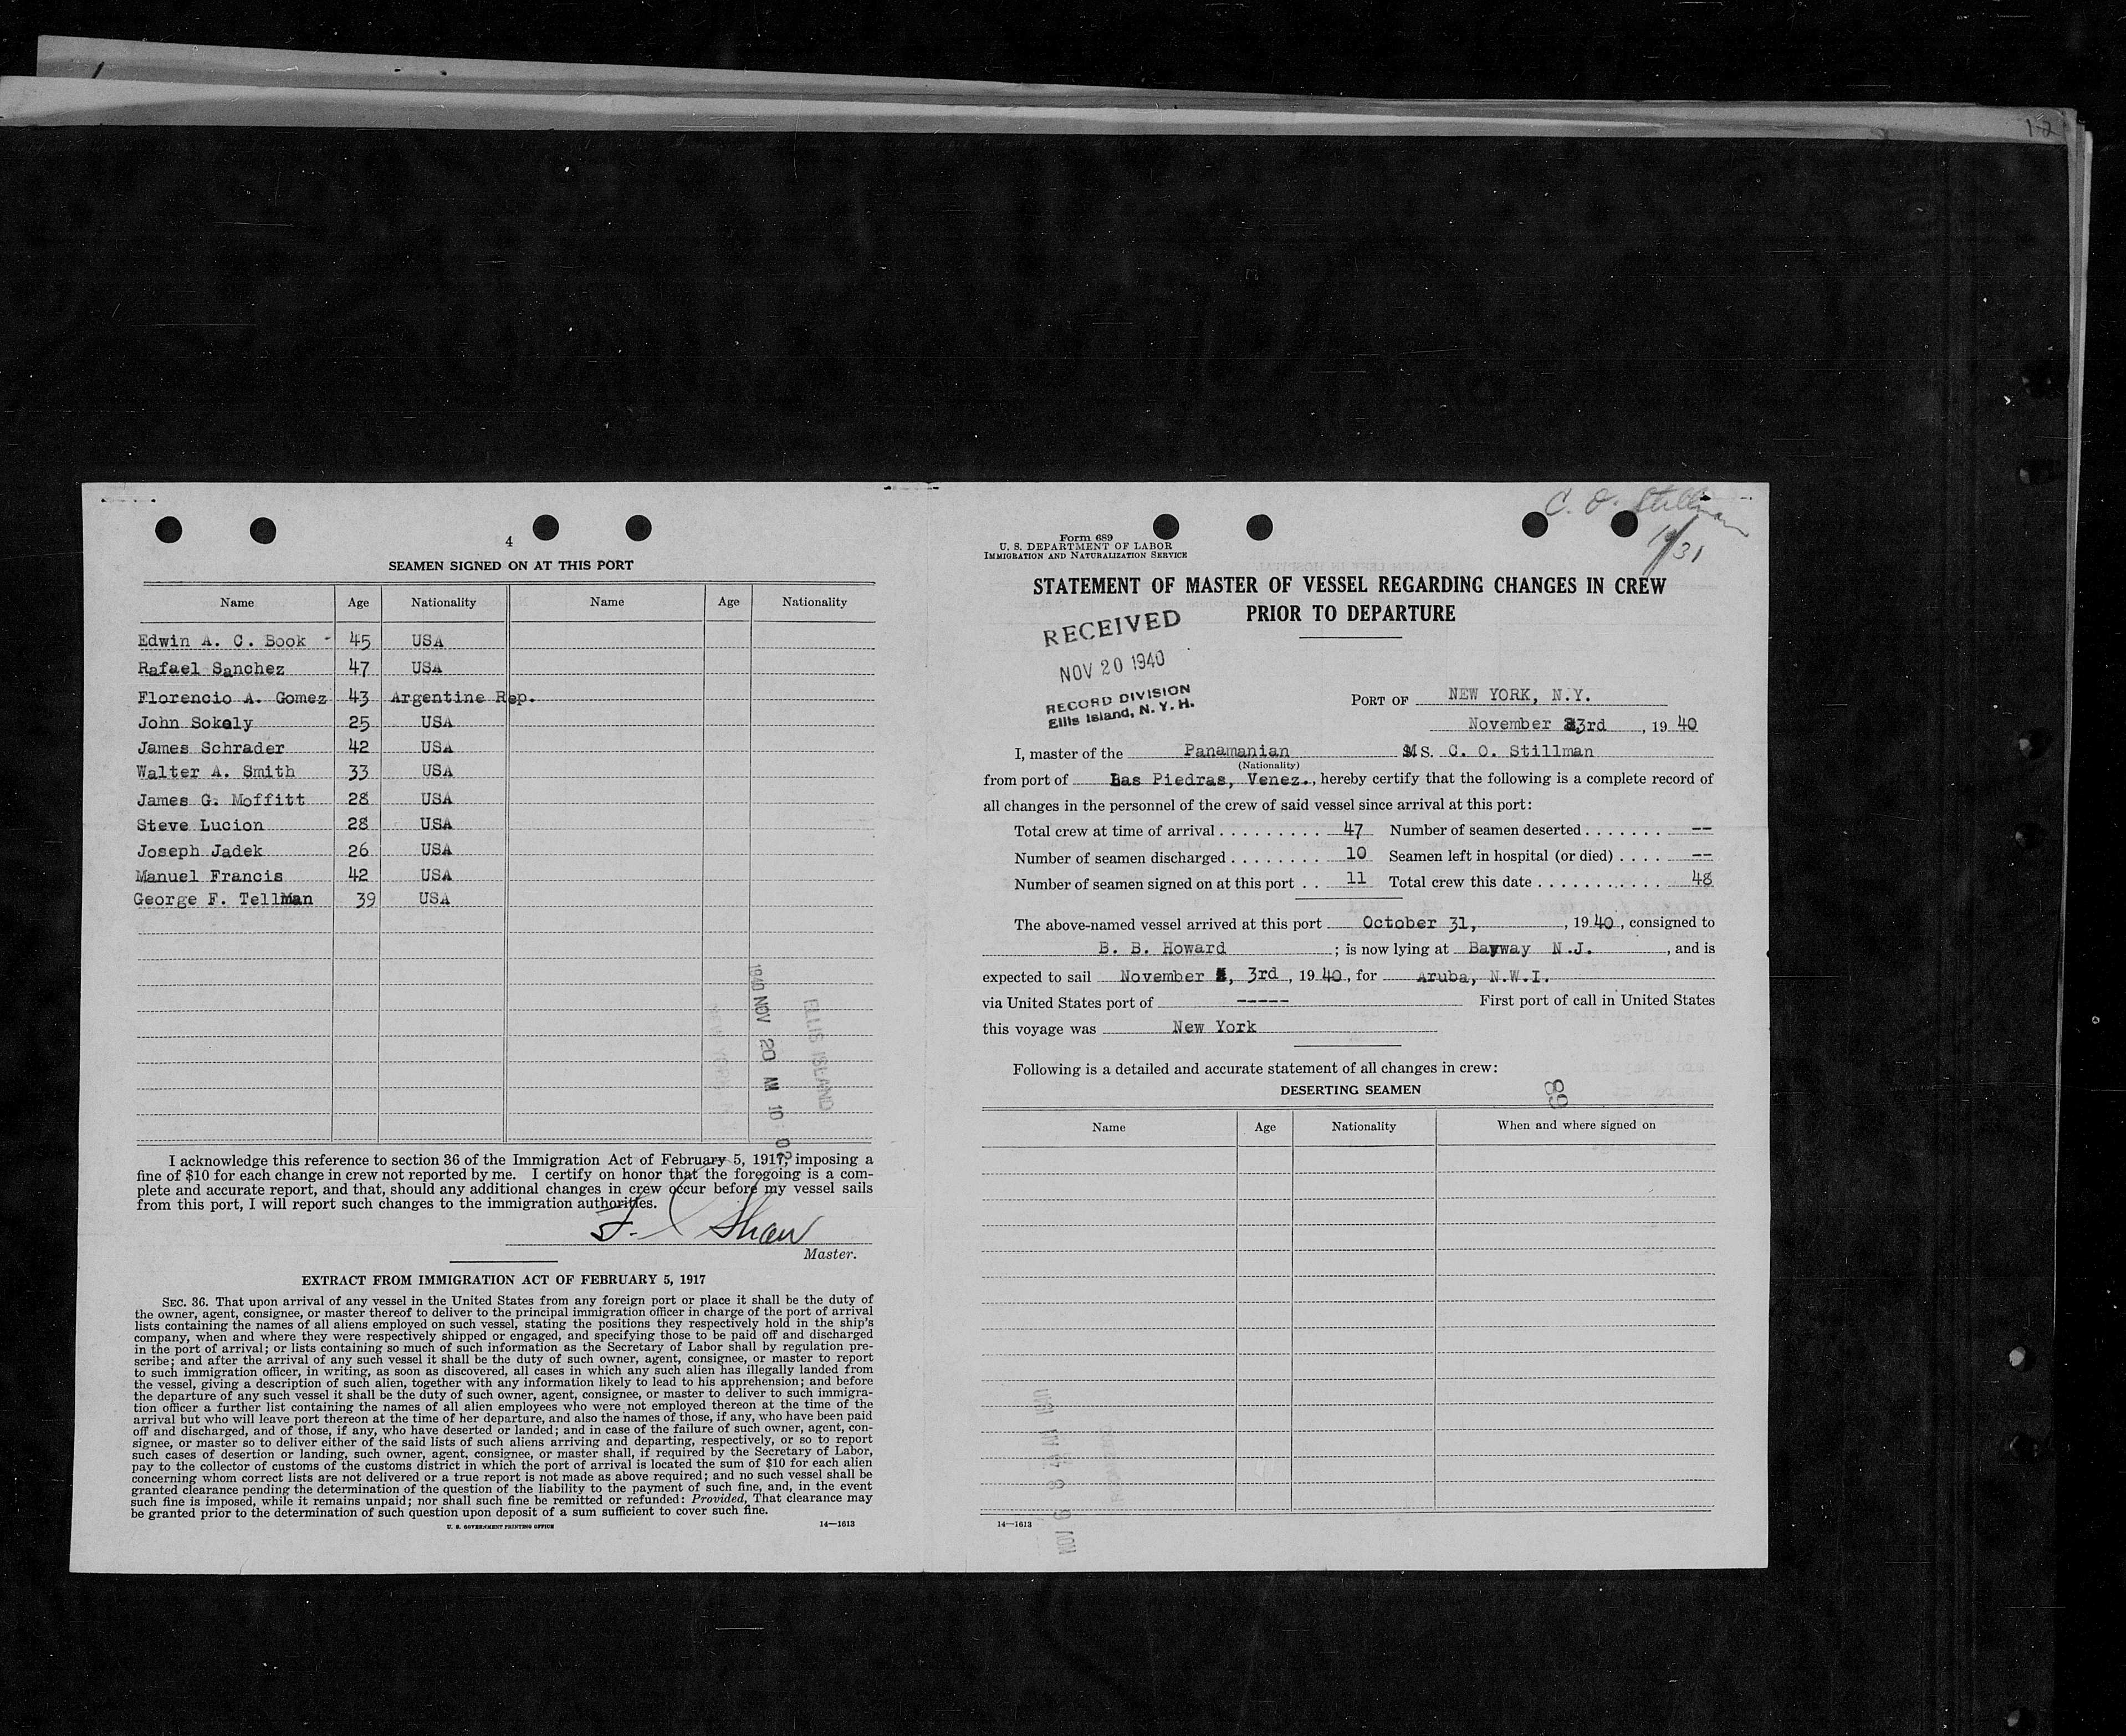 12
4
SEAMEN SIGNED ON AT THIS PORT
Name Age Nationality Name Age Nationality
Edwin A. C. Book - 45 USA
Rafael Sanchez 47 USA
Florencio A. Gomez 43 Argentine Rep.
John Sokely 25 USA
James Schrader 42 USA
Walter A. Smith 33 USA
James G. Moffitt 28 USA
Steve Lucion 28 USA
Joseph Jadek 26 USA
Manuel Francis 42 USA
George F. Tellman 39 USA
1940 NOV 20 M 10 02
ELLIS ISLAND
I acknowledge this reference to section 36 of the Immigration Act of February 5, 1917, imposing a
fine of $10 for each change in crew not reported by me. I certify on honor that the foregoing is a com-
plete and accurate report, and that, should any additional changes in crew occur before my vessel sails
from this port, I will report such changes to the immigration authorities.
Shaw
Master.
EXTRACT FROM IMMIGRATION ACT OF FEBRUARY 5, 1917
SEC. 36. That upon arrival of any vessel in the United States from any foreign port or place it shall be the duty of
the owner, agent, consignee, or master thereof to deliver to the principal immigration officer in charge of the port of arrival
lists containing the names of all aliens employed on such vessel, stating the positions they respectively hold in the ship's
company, when and where they were respectively shipped or engaged, and specifying those to be paid off and discharged
in the port of arrival; or lists containing so much of such information as the Secretary of Labor shall by regulation pre-
scribe; and after the arrival of any such vessel it shall be the duty of such owner, agent, consignee, or master to report
to such immigration officer, in writing, as soon as discovered, all cases in which any such alien has illegally landed from
the vessel, giving a description of such alien, together with any information likely to lead to his apprehension; and before
the departure of any such vessel it shall be the duty of such owner, agent, consignee, or master to deliver to such immigra-
tion officer a further list containing the names of all alien employees who were not employed thereon at the time of the
arrival but who will leave port thereon at the time of her departure, and also the names of those, if any, who have been paid
off and discharged, and of those, if any, who have deserted or landed; and in case of the failure of such owner, agent, con-
signee, or master so to deliver either of the said lists of such aliens arriving and departing, respectively, or so to report
such cases of desertion or landing, such owner, agent, consignee, or master shall, if required by the Secretary of Labor,
pay to the collector of customs of the customs district in which the port of arrival is located the sum of $10 for each alien
concerning whom correct lists are not delivered or a true report is not made as above required; and no such vessel shall be
granted clearance pending the determination of the question of the liability to the payment of such fine, and, in the event
such fine is imposed, while it remains unpaid; nor shall such fine be remitted or refunded: Provided, That clearance may
be granted prior to the determination of such question upon deposit of a sum sufficient to cover such fine.
U. S. GOVERNMENT PRINTING OFFICE 14—1613
C. O. Stillman
10/31
Form 689
U. S. DEPARTMENT OF LABOR
IMMIGRATION AND NATURALIZATION SERVICE
STATEMENT OF MASTER OF VESSEL REGARDING CHANGES IN CREW
PRIOR TO DEPARTURE
RECEIVED
NOV 20 1940
RECORD DIVISION
Ellis Island, N. Y. H.
PORT OF NEW YORK, N.Y.
November 3rd, 1940
I, master of the Panamanian MS. C. O. Stillman
(Nationality)
from port of Las Piedras, Venez., hereby certify that the following is a complete record of
all changes in the personnel of the crew of said vessel since arrival at this port:
Total crew at time of arrival . . . . . . . . . 47 Number of seamen deserted . . . . . . . --
Number of seamen discharged . . . . . . . . 10 Seamen left in hospital (or died) . . . . --
Number of seamen signed on at this port . . 11 Total crew this date . . . . . . . . . . . . 48
The above-named vessel arrived at this port October 31, , 1940, consigned to
B. B. Howard ; is now lying at Bayway N.J. , and is
expected to sail November , 3rd, 1940, for Aruba, N.W.I.
via United States port of ----- First port of call in United States
this voyage was New York
Following is a detailed and accurate statement of all changes in crew:
DESERTING SEAMEN
89
Name Age Nationality When and where signed on
14—1613